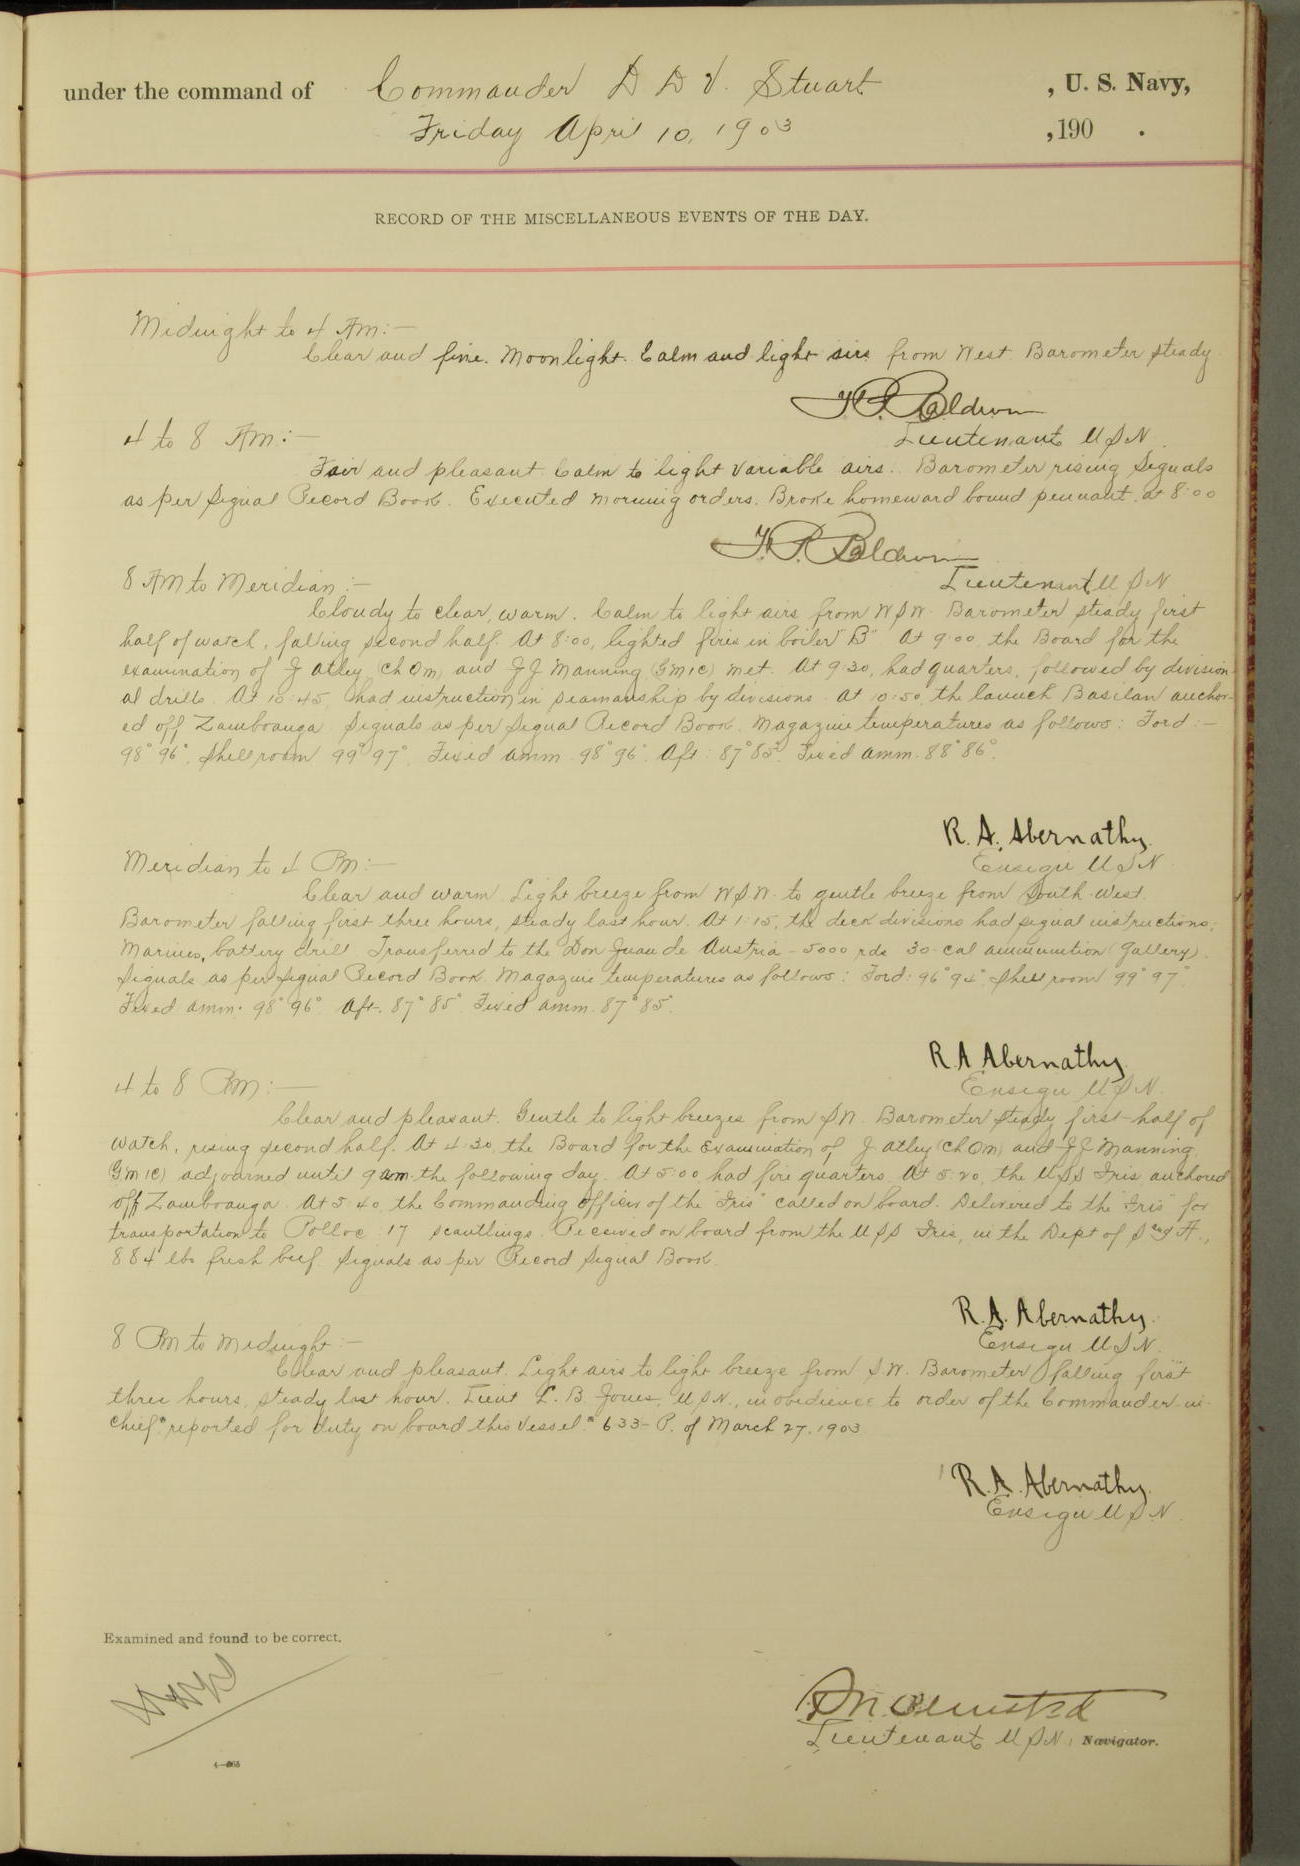 under the command of Commander D D V. Stuart, U. S. Navy,
Friday April 10, 1903 , 190 .
RECORD OF THE MISCELLANEOUS EVENTS OF THE DAY.
Midnight to 4 AM:—
Clear and fine. Moonlight. Calm and light airs from West. Barometer steady
Baldwin
Lieutenant USN.
4 to 8 AM:—
Fair and pleasant. Calm to light variable airs. Barometer rising Signals
as per Signal Record Book. Executed morning orders. Broke homeward bound pennant at 8:00
Baldwin
Lieutenant USN
8 AM to Meridian:—
Cloudy to clear, warm. Calm to light airs from WSW. Barometer steady first
half of watch, falling second half. At 8:00, lighted fires in boiler "B" At 9:00 the Board for the
examination of J Atley (Ch Gm) and J J Manning (GM1C) met. At 9:30, had quarters, followed by division-
al drills. At 10:45, had instruction in seamanship by divisions. At 10:50, the launch Basilan anchor-
ed off Zamboanga. Signals as per Signal Record Book. Magazine temperatures as follows: Ford:—
98° 96°. Shell room 99° 97°. Fixed amm. 98° 96°. Aft: 87° 85°. Fixed amm. 88° 86°.
R. A. Abernathy.
Ensign USN.
Meridian to 4 PM:—
Clear and warm. Light breeze from WSW. to gentle breeze from South-West.
Barometer falling first three hours, steady last hour. At 1:15, the deck divisions had signal instructions;
Marines, battery drill. Transferred to the Don Juan de Austria - 5000 rds 30 cal ammunition (gallery).
Signals as per Signal Record Book. Magazine temperatures as follows: Ford: 96° 94°. Shell room 99° 97°.
Fixed amm. 98° 96°. Aft. 87° 85°. Fixed amm. 87° 85°.
R. A Abernathy
Ensign USN.
4 to 8 PM:—
Clear and pleasant. Gentle to light breezes from SW. Barometer steady first-half of
watch, rising second half. At 4:30, the Board for the Examination of J Atley (Ch Gm) and J J Manning,
(GM1C) adjourned until 9 am. the following day. At 5:00 had fire quarters. At 5:20, the USS Iris anchored
off Zamboanga. At 5:40, the Commanding officer of the "Iris" called on board. Delivered to the "Iris" for
transportation to Polloc 17 scantlings. Received on board from the USS Iris, in the Dept of S and A.,
884 lbs fresh beef. Signals as per Record Signal Book.
R. A. Abernathy.
Ensign USN.
8 PM to Midnight:—
Clear and pleasant. Light airs to light breeze from SW. Barometer falling first
three hours, steady last hour. Lieut L. B. Jones, USN., in obedience to order of the Commander-in-
Chief* reported for duty on board this vessel. * 633-P. of March 27, 1903
R. A. Abernathy.
Ensign USN.
Examined and found to be correct.
Olmsted
Lieutenant USN, Navigator.